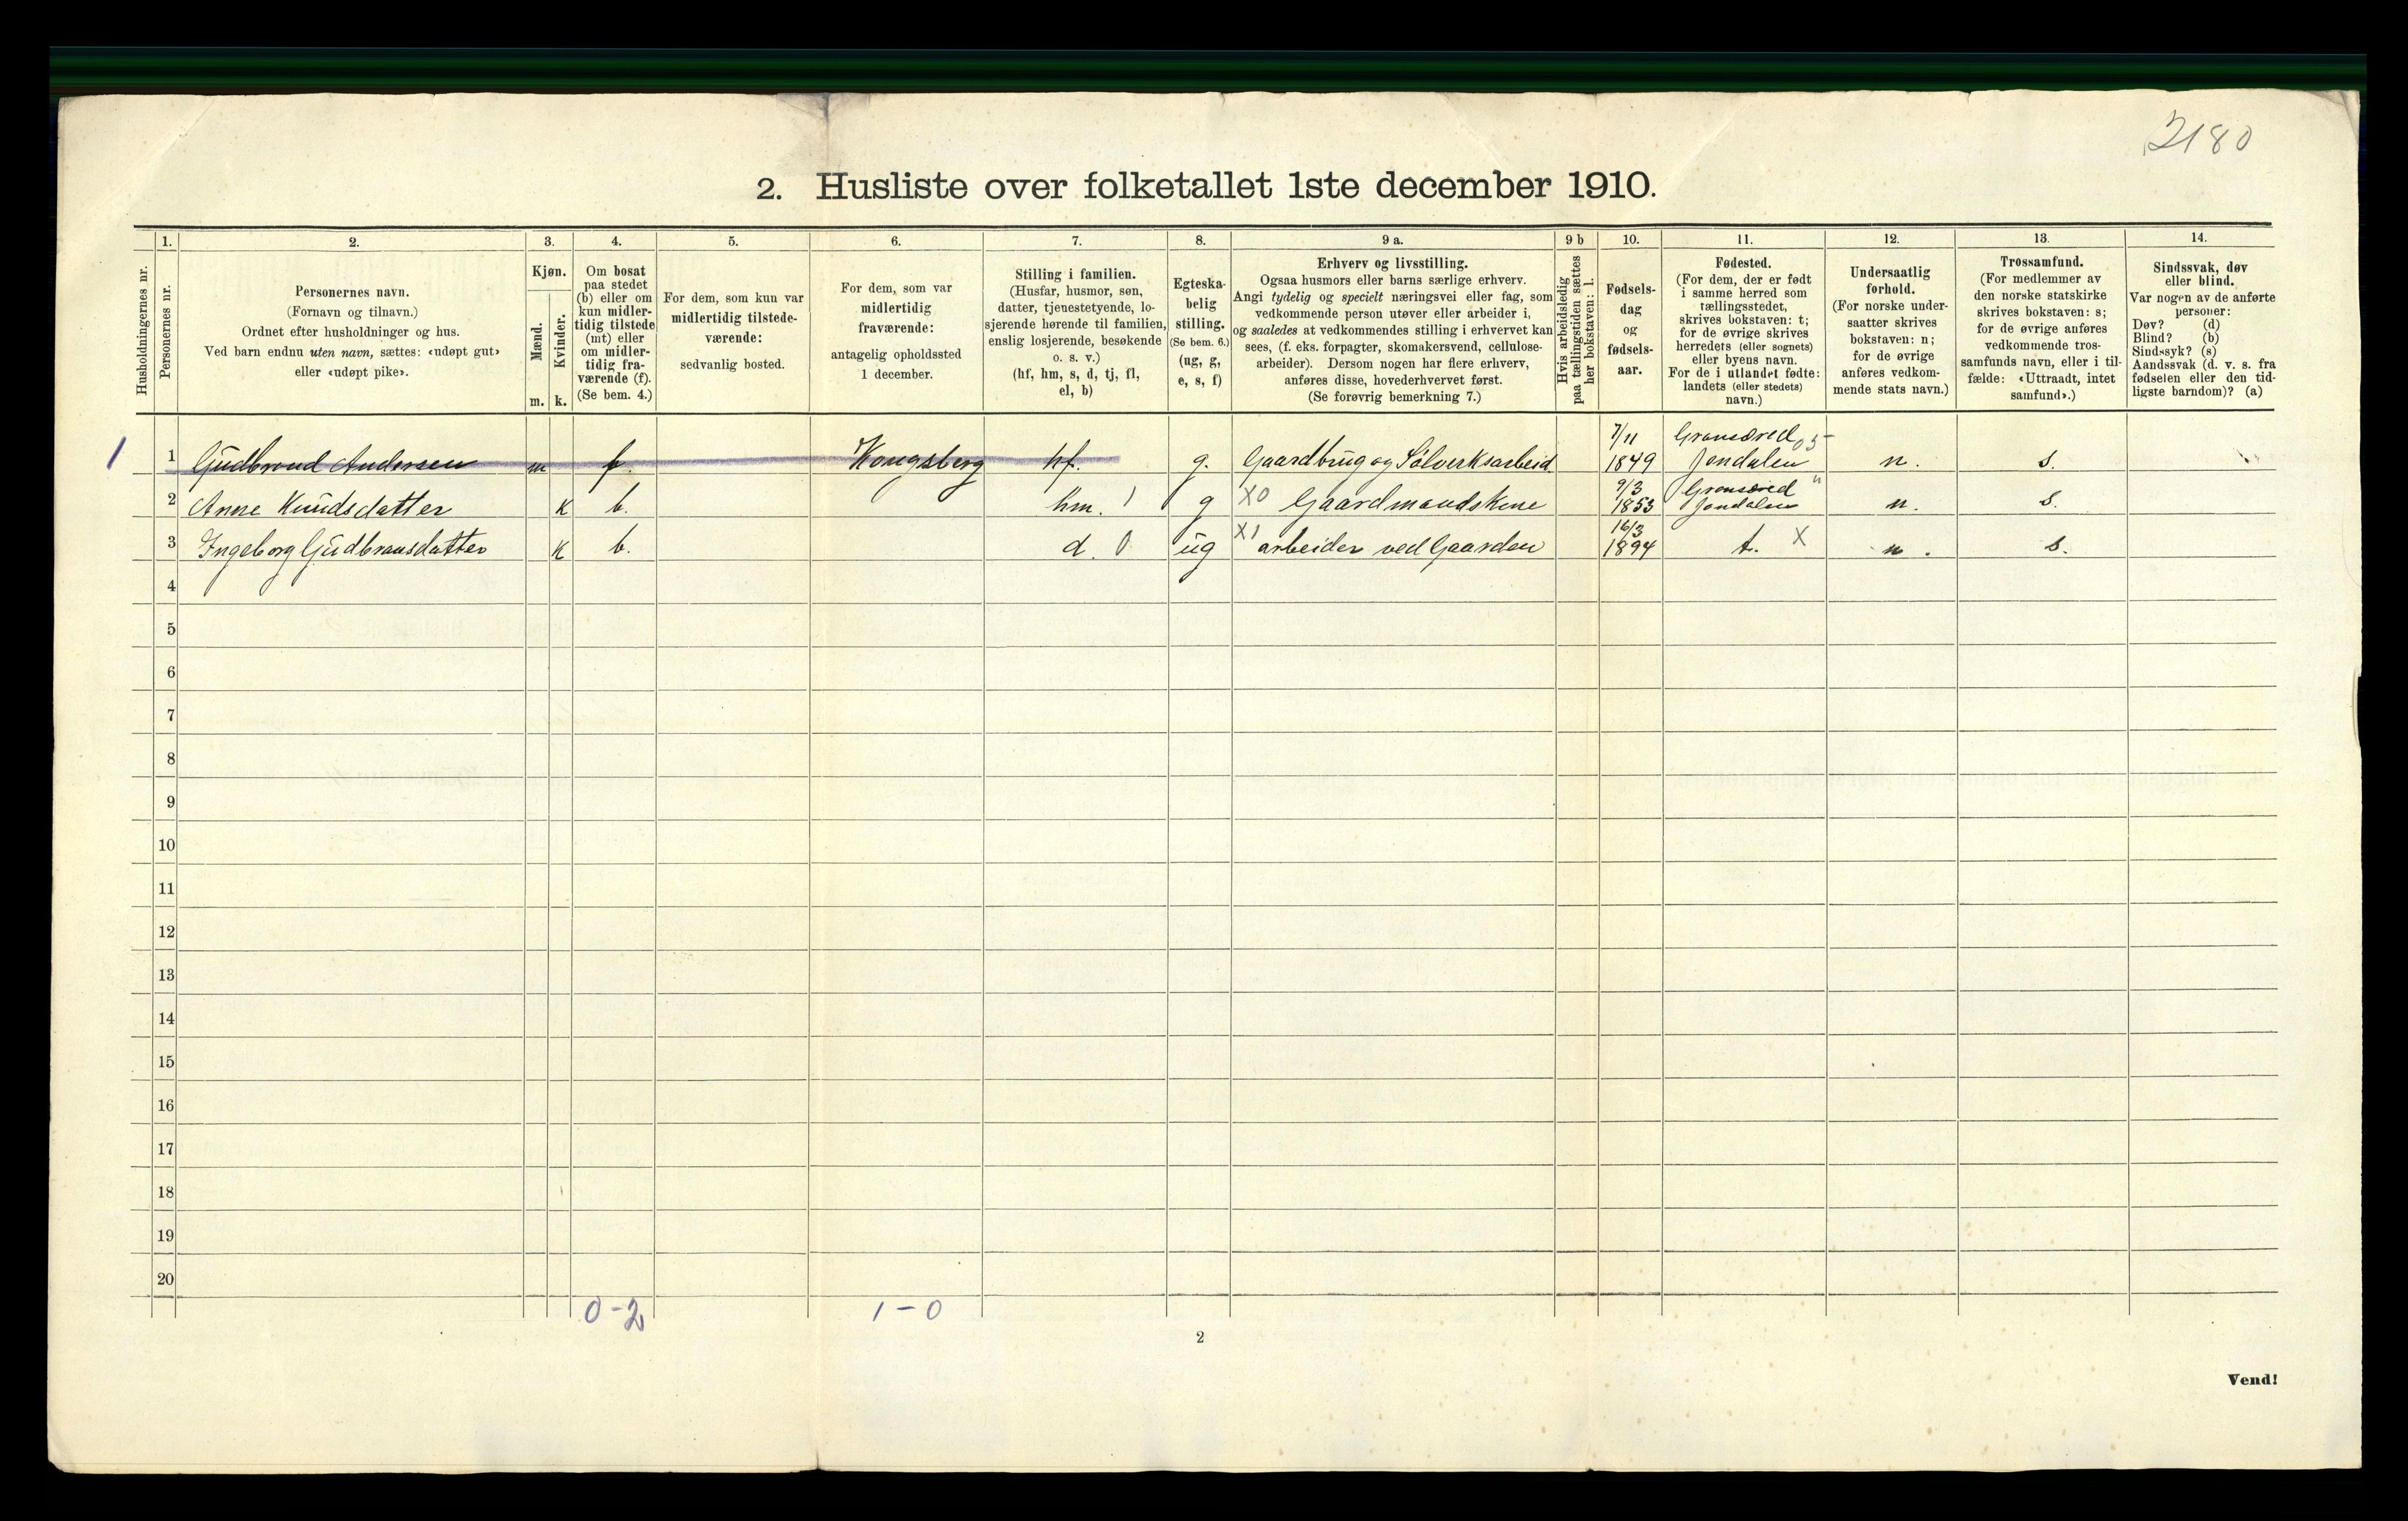 2180
2. Husliste over folketallet 1ste december 1910.
1. 2. 3. 4. 5. 6. 7. 8. 9 a. 9 b 10. 11. 12. 13. 14.
Husholdningernes nr.
Personernes nr.
Personernes navn.
(Fornavn og tilnavn.)
Ordnet efter husholdninger og hus.
Ved barn endnu uten navn, sættes: «udøpt gut»
eller «udøpt pike».
Kjøn.
Mænd.
Kvinder.
m. k.
Om bosat
paa stedet
(b) eller om
kun midler-
tidig tilstede
(mt) eller
om midler-
tidig fra-
værende (f).
(Se bem. 4.)
For dem, som kun var
midlertidig tilstede-
værende:
sedvanlig bosted.
For dem, som var
midlertidig
fraværende:
antagelig opholdssted
1 december.
Stilling i familien.
(Husfar, husmor, søn,
datter, tjenestetyende, lo-
sjerende hørende til familien,
enslig losjerende, besøkende
o. s. v.)
(hf, hm, s, d, tj, fl,
el, b)
Egteska-
belig
stilling.
(Se bem. 6.)
(ug, g,
e, s, f)
Erhverv og livsstilling.
Ogsaa husmors eller barns særlige erhverv.
Angi tydelig og specielt næringsvei eller fag, som
vedkommende person utøver eller arbeider i,
og saaledes at vedkommendes stilling i erhvervet kan
sees, (f. eks. forpagter, skomakersvend, cellulose-
arbeider). Dersom nogen har flere erhverv,
anføres disse, hovederhvervet først.
(Se forøvrig bemerkning 7.)
Hvis arbeidsledig
paa tællingstiden sættes
her bokstaven: l.
Fødsels-
dag
og
fødsels-
aar.
Fødested.
(For dem, der er født
i samme herred som
tællingsstedet,
skrives bokstaven: t;
for de øvrige skrives
herredets (eller sognets)
eller byens navn.
For de i utlandet fødte:
landets (eller stedets)
navn.)
Undersaatlig
forhold.
(For norske under-
saatter skrives
bokstaven: n;
for de øvrige
anføres vedkom-
mende stats navn.)
Trossamfund.
(For medlemmer av
den norske statskirke
skrives bokstaven: s;
for de øvrige anføres
vedkommende tros-
samfunds navn, eller i til-
fælde: «Uttraadt, intet
samfund».)
Sindssvak, døv
eller blind.
Var nogen av de anførte
personer:
Døv? (d)
Blind? (b)
Sindssyk? (s)
Aandssvak (d. v. s. fra
fødselen eller den tid-
ligste barndom)? (a)
7/11 Gransered 05
1 1 Gudbrand Andersen m f. Kongsberg hf. g. Gaardbrug og Sölverksarbeid 1849 Jondalen n. s.
9/3 Gransered "
2 Anne Knudsdatter k b. hm. 1 g X0 Gaardmandskone 1853 Jondalen n. s.
16/3
3 Ingeborg Gudbransdatter k b. d. 0 ug X1 arbeider ved Gaarden 1894 t. X n. s.
4
5
6
7
8
9
10
11
12
13
14
15
16
17
18
19
20
0-2 1-0
2
Vend!